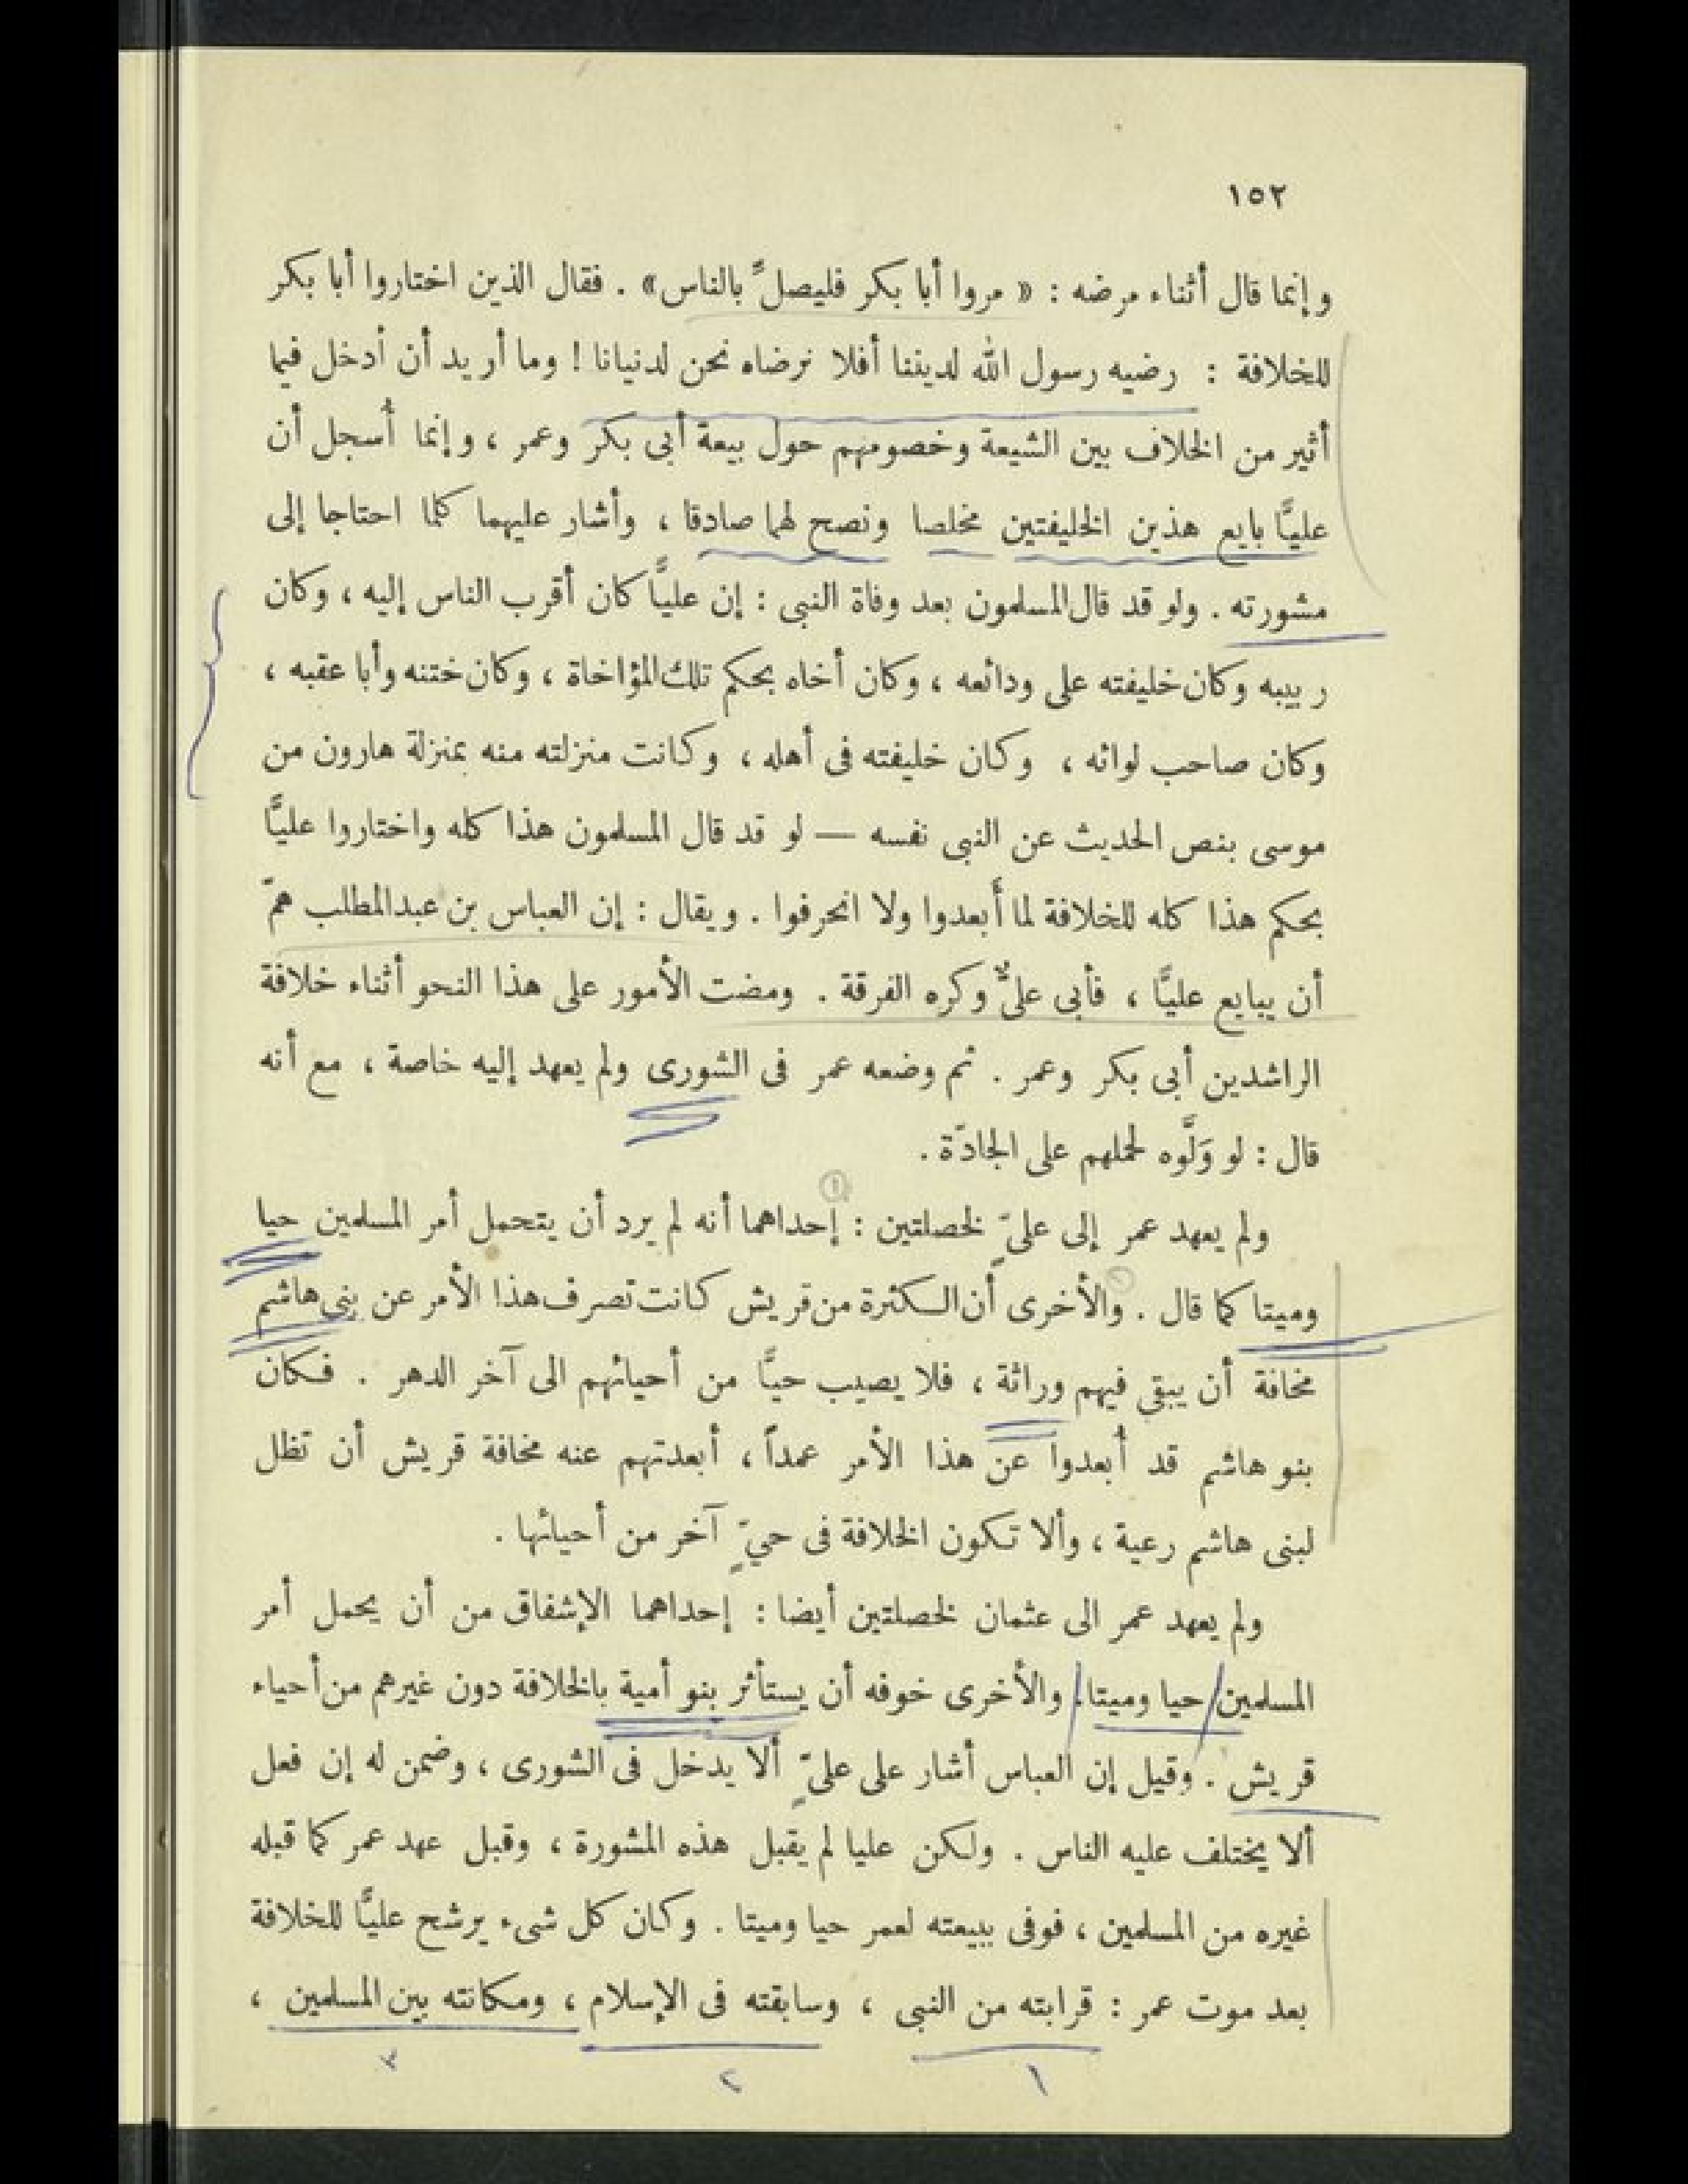 ١٥٢
وإنما قال أثناء مرضه : « مروا أبا بكر فليصلِّ بالناس» . فقال الذين اختاروا أبا بكر
للخلافة : رضيه رسول الله لديننا أفلا نرضاه نحن لدنيانا ! وما أريد أن أدخل فيما
أثير من الخلاف بين الشيعة وخصومهم حول بيعة أبى بكر وعمر ، وإنما أُسجل أن
عليًّا بايع هذين الخليفتين مخلصا ونصح لهما صادقا ، وأشار عليهما كلما احتاجا إلى
مشورته . ولو قد قال المسلمون بعد وفاة النبى : إن عليًّا كان أقرب الناس إليه ، وكان
ربيبه وكان خليفته على ودائعه ، وكان أخاه بحكم تلك المؤاخاة ، وكان ختنه وأبا عقبه ،
وكان صاحب لوائه ، وكان خليفته فى أهله ، وكانت منزلته منه بمنزلة هارون من
موسى بنص الحديث عن النبى نفسه — لو قد قال المسلمون هذا كله واختاروا عليًّا
بحكم هذا كله للخلافة لما أَبعدوا ولا انحرفوا . ويقال : إن العباس بن عبدالمطلب همّ
أن يبايع عليًّا ، فأبى علىٌّ وكره الفرقة . ومضت الأمور على هذا النحو أثناء خلافة
الراشدين أبى بكر وعمر . ثم وضعه عمر فى الشورى ولم يعهد إليه خاصة ، مع أنه
قال : لو وَلَّوه لحملهم على الجادّة .
ولم يعهد عمر إلى علىّ لخصلتين : إحداهما أنه لم يرد أن يتحمل أمر المسلمين حيا
وميتا كما قال . والأخرى أن الكثرة من قريش كانت تصرف هذا الأمر عن بنى هاشم
مخافة أن يبقى فيهم وراثة ، فلا يصيب حيًّا من أحيائهم الى آخر الدهر . فكان
بنو هاشم قد أُبعدوا عن هذا الأمر عمداً ، أبعدتهم عنه مخافة قريش أن تظل
لبنى هاشم رعية ، وألا تكون الخلافة فى حىّ آخر من أحيائها .
ولم يعهد عمر الى عثمان لخصلتين أيضا : إحداهما الإشفاق من أن يحمل أمر
المسلمين حيا وميتا ، والأخرى خوفه أن يستأثر بنو أمية بالخلافة دون غيرهم من أحياء
قريش . وقيل إن العباس أشار على علىّ ألا يدخل فى الشورى ، وضمن له إن فعل
ألا يختلف عليه الناس . ولكن عليا لم يقبل هذه المشورة ، وقبل عهد عمر كما قبله
غيره من المسلمين ، فوفى ببيعته لعمر حيا وميتا . وكان كل شىء يرشح عليًّا للخلافة
بعد موت عمر : قرابته من النبى ، وسابقته فى الإسلام ، ومكانته بين المسلمين ،
١ ٢ ٣